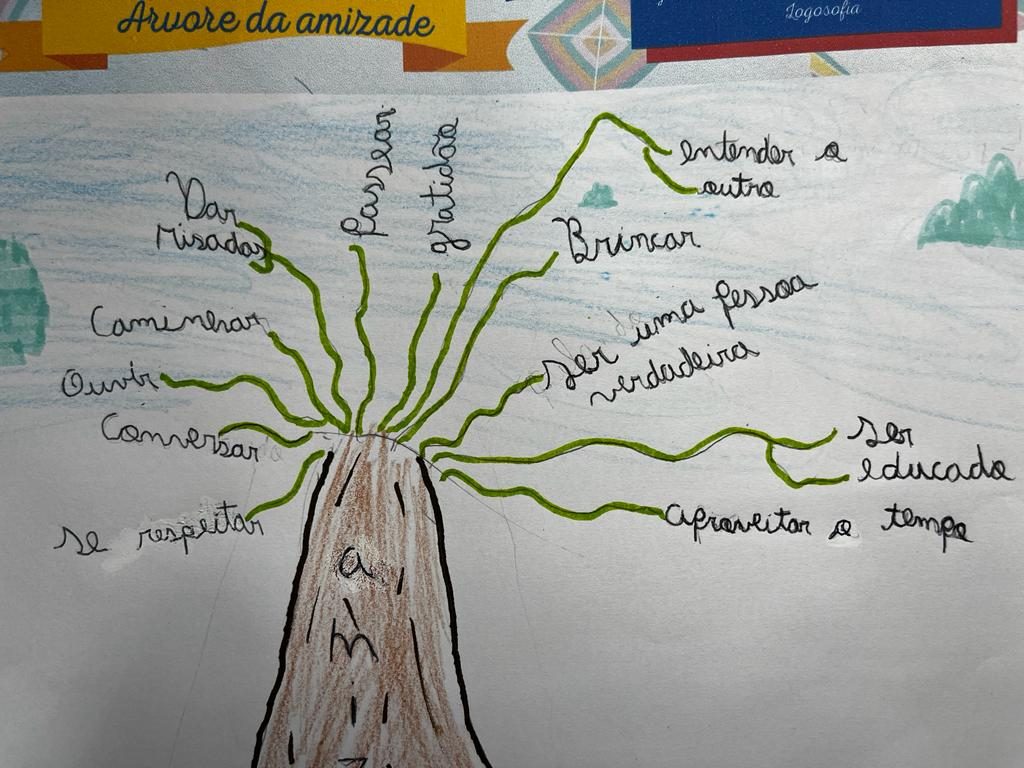 Árvore da amizade
Logosofia
Dar
risadas
Passear
gratidão
entender o
outro
Brincar
Caminhar
Ouvir
Conversar
se respeitar
Ser uma pessoa
verdadeira
Ser
educado
Aproveitar o tempo
a
m
i
z